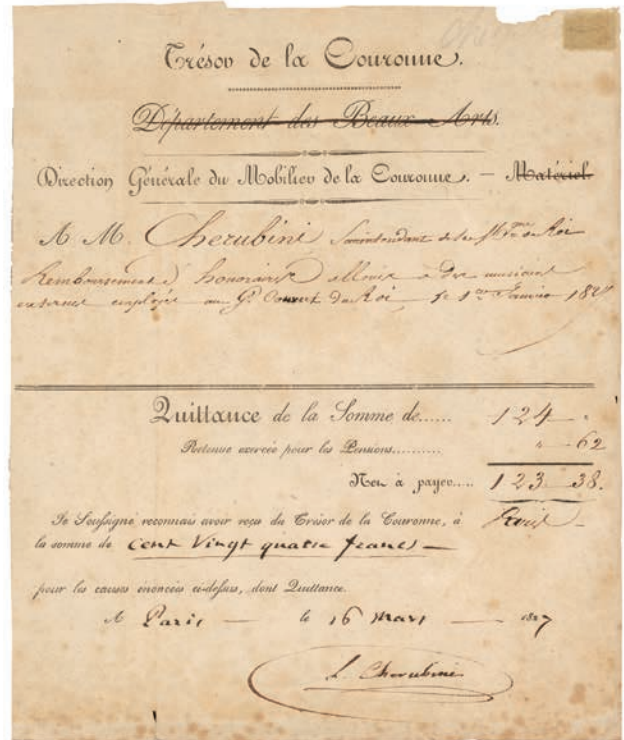 Trésor de la Couronne.
Département des Beaux-Arts.
Direction Générale du Mobilier de la Couronne. — Matériel.
A M. Cherubini Surintendant de la Mque du Roi
Remboursement d'honoraires alloués à des musiciens
externes employés au Gd. Couvert du Roi le 1er Janvier 1827
Quittance de la Somme de...... 124 — "
Retenue exercée pour les Pensions.......... " — 62
Net à payer.... 123 — 38.
Je Soussigné reconnais avoir reçu du Trésor de la Couronne, à Paris —
la somme de cent Vingt quatre francs —
pour les causes énoncées ci-dessus, dont Quittance.
A Paris — le 16 mars — 1827
L. Cherubini